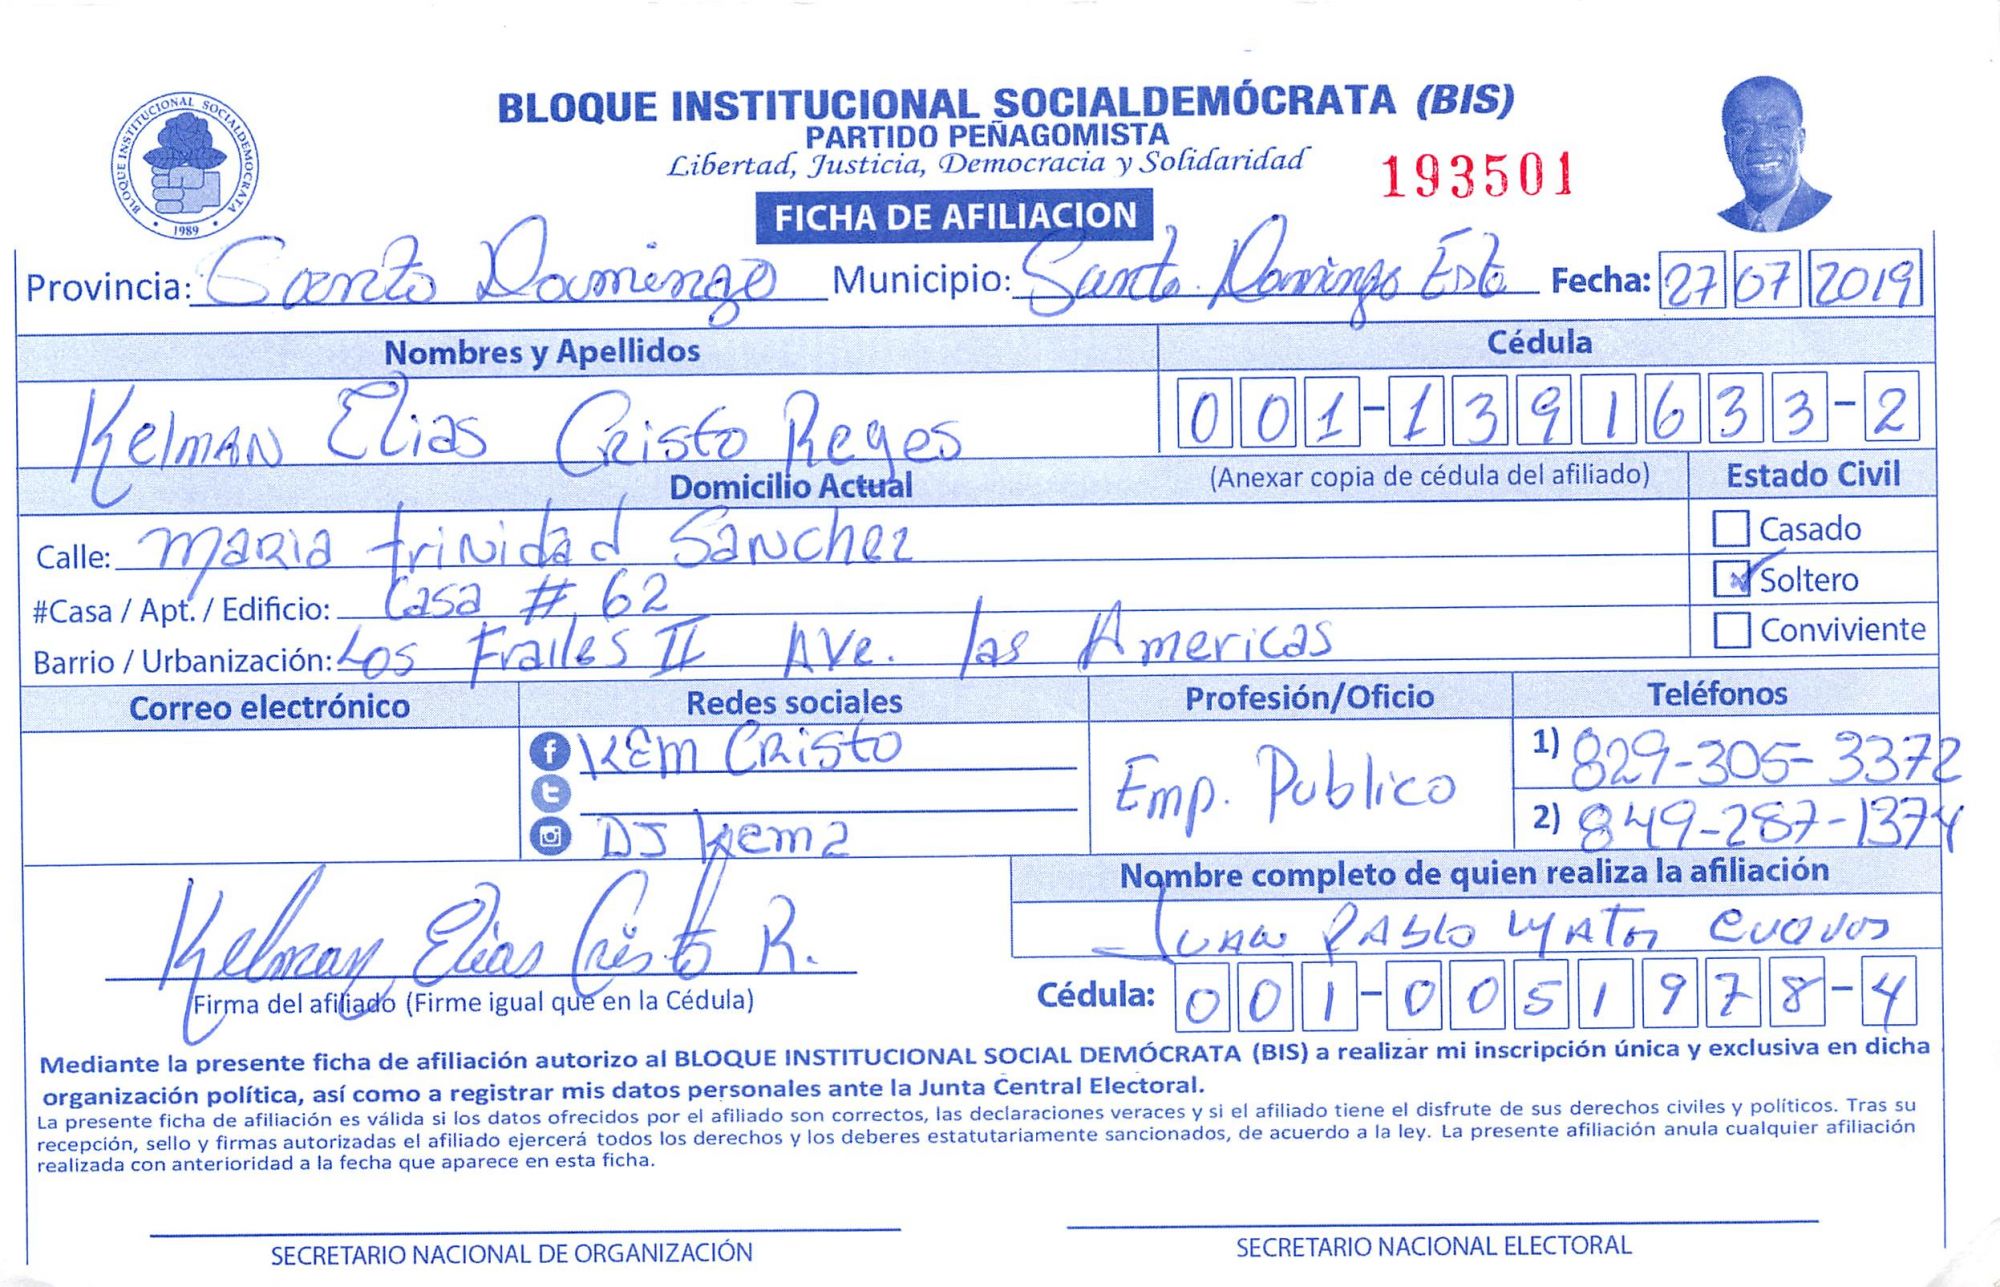 BLOQUE INSTITUCIONAL SOCIALDEMÓCRATA (BIS)
PARTIDO PEÑAGOMISTA
Libertad, Justicia, Democracia y Solidaridad
193501
BLOQUE INSTITUCIONAL SOCIALDEMOCRATA
1989
FICHA DE AFILIACION
Provincia: Santo Domingo Municipio: Santo Domingo Este Fecha: 27 07 2019
Nombres y Apellidos Cédula
Kelman Elias Cristo Reyes 001-1391633-2
Domicilio Actual (Anexar copia de cédula del afiliado) Estado Civil
Calle: Maria trinidad Sanchez Casado
#Casa / Apt. / Edificio: Casa # 62 Soltero
Barrio / Urbanización: Los Frailes II Ave. las Americas Conviviente
Correo electrónico Redes sociales Profesión/Oficio Teléfonos
KEM Cristo Emp. Publico 1) 829-305-3372
DJ kem2 2) 849-287-1374
Nombre completo de quien realiza la afiliación
Kelman Elias Cristo R. Juan Pablo Matos Cuevas
Firma del afiliado (Firme igual que en la Cédula) Cédula: 001-0051978-4
Mediante la presente ficha de afiliación autorizo al BLOQUE INSTITUCIONAL SOCIAL DEMÓCRATA (BIS) a realizar mi inscripción única y exclusiva en dicha
organización política, así como a registrar mis datos personales ante la Junta Central Electoral.
La presente ficha de afiliación es válida si los datos ofrecidos por el afiliado son correctos, las declaraciones veraces y si el afiliado tiene el disfrute de sus derechos civiles y políticos. Tras su
recepción, sello y firmas autorizadas el afiliado ejercerá todos los derechos y los deberes estatutariamente sancionados, de acuerdo a la ley. La presente afiliación anula cualquier afiliación
realizada con anterioridad a la fecha que aparece en esta ficha.
SECRETARIO NACIONAL DE ORGANIZACIÓN SECRETARIO NACIONAL ELECTORAL